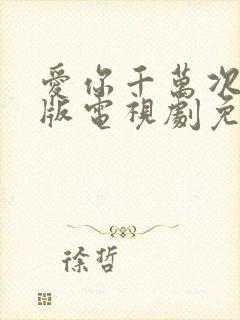 愛你千萬次
版電視劇免
徐哲